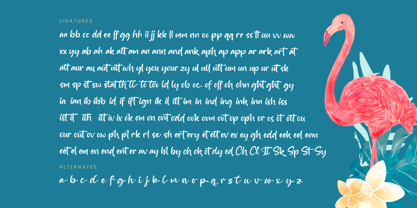 LIGATURES
aa bb cc dd ee ff gg hh ii jj kk ll mm nn oo pp qq rr ss tt uu vv ww
xx yy ab ah ak am an ann and ank aph ap app ar ark art at
att aur au aut wh yl you your zy ul ull um un up ur ut sk
sm sp st sw to tw ld ly ob oc of off oh ohn ght ght gy
ia ian ib ibb id if ift ign ik il im in ind ing ink inn ish iss
ist it ith itt iv ix ok om on out odd ook own op oph or os ot ott ou
our out ov ow ph pl rk rl se sh ert ery et ett ev ex ey gh edd eek eel een
eet el em en end ent er aw ay bl by ch ck dy ed Ch Cl St Sk Sp St Sy
ALTERNATES
a b c d e f g h i j k l m n o p q r s t u v w x y z